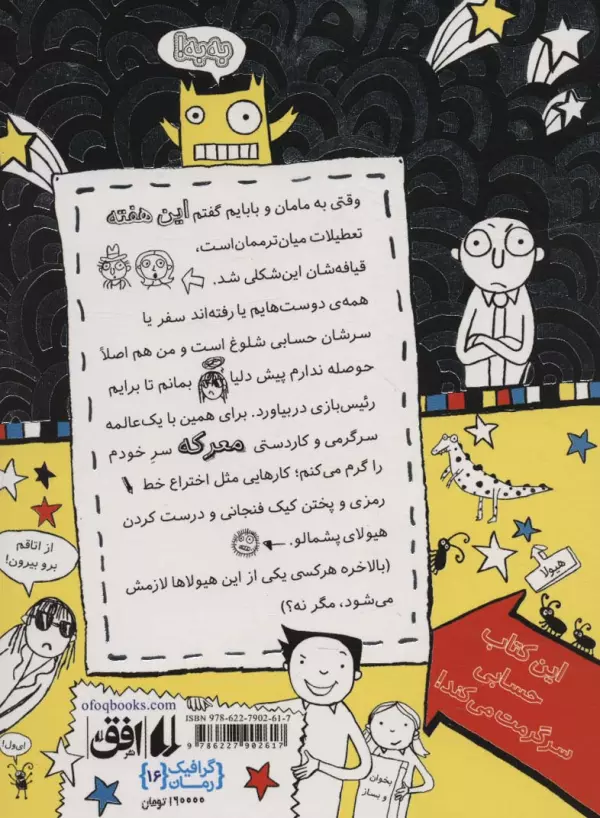 به‌به!
وقتی به مامان و بابایم گفتم این هفته
تعطیلات میان‌ترممان‌است،
قیافه‌شان این‌شکلی شد.
همه‌ی دوست‌هایم یا رفته‌اند سفر یا
سرشان حسابی شلوغ است و من هم اصلاً
حوصله ندارم پیش دلیا بمانم تا برایم
رئیس‌بازی دربیاورد. برای همین با یک‌عالمه
سرگرمی و کاردستی معرکه سرِ خودم
را گرم می‌کنم؛ کارهایی مثل اختراع خط
رمزی و پختن کیک فنجانی و درست کردن
هیولای پشمالو.
(بالاخره هرکسی یکی از این هیولاها لازمش
می‌شود، مگر نه؟)
هیولا
از اتاقم
برو بیرون!
این کتاب
حسابی
سرگرمت می‌کند!
ofoqbooks.com
نشر افق
ISBN 978-622-7902-61-7
9 786227 902617
گرافیک
رمان
{۱۶}
۱۹۰۰۰۰ تومان
ای‌ول!
بخوان
و بساز